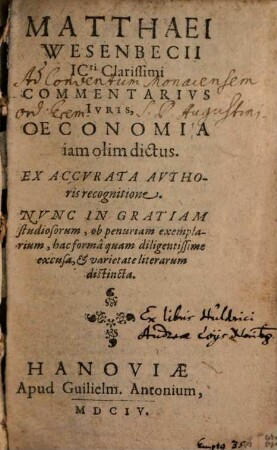 MATTHAEI
WESENBECII
ICti Clarissimi
Ad Conventum Monacensem
COMMENTARIVS
Ord. Erem. S. P. Augustini
IVRIS,
OECONOMIA
iam olim dictus.
EX ACCVRATA AVTHO-
ris recognitione.
NVNC IN GRATIAM
studiosorum, ob penuriam exempla-
rium, hac formâ quam diligentissime
excusa, & varietate literarum
distincta.
Ex libris Huldrici
Andreæ
HANOVIÆ
Apud Guilielm. Antonium,
MDCIV.